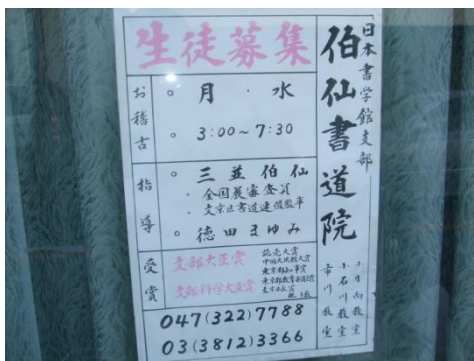 日本書学館支部
伯仙書道院
小日向教室
小石川教室
市川教室
生徒募集
お稽古
月・水
3:00~7:30
指導
三並伯仙
全国展審査員
文京区書道連盟監事
徳田まゆみ
受賞
文部大臣賞
文部科学大臣賞
読売大賞
東京都知事賞
047(322)7788
03(3812)3366